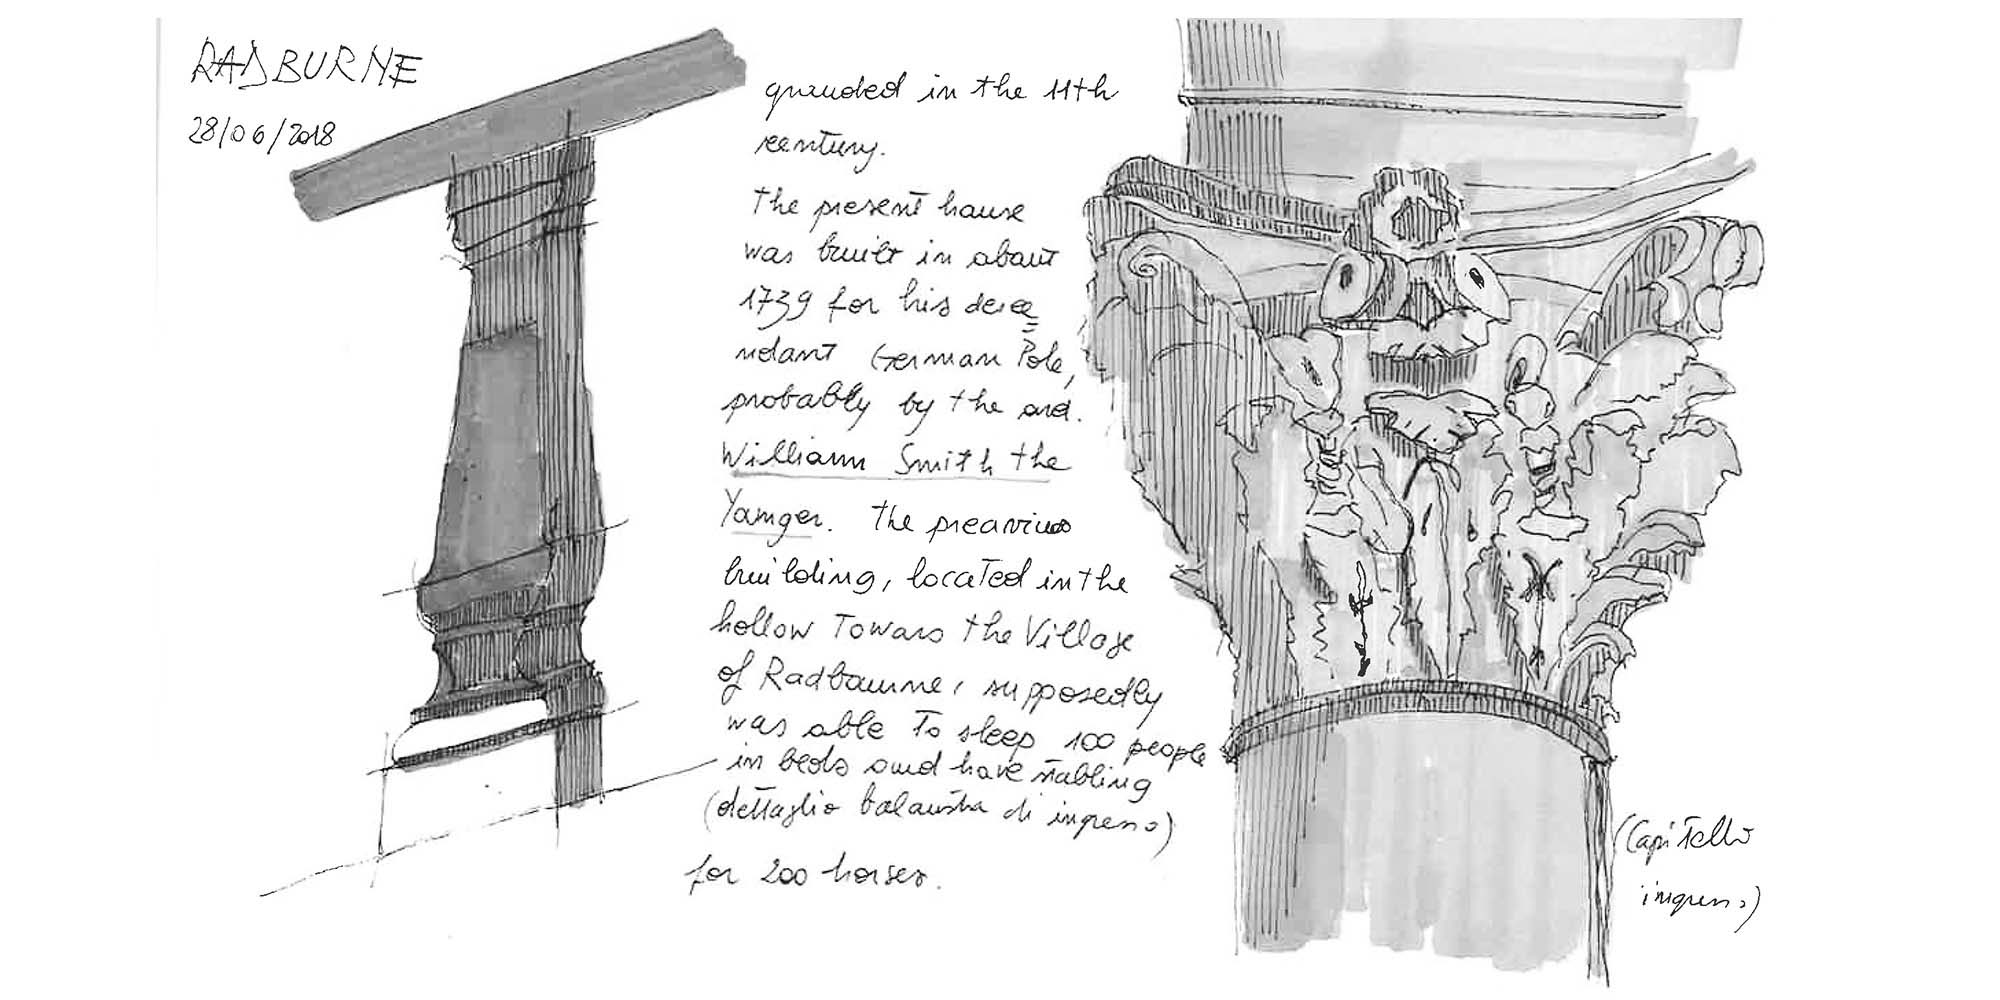 RADBURNE
28/06/2018
grauded in the 11th
century.
the present house
was built in about
1739 for his dece
ndant German Pole,
probably by the
William Smith the
Yaunger. the preavious
building, located in the
hollow Towards the Village
of Radbaurne, supposedly
was able to sleep 100 people
in beds and have stabling
(dettaglio balaustra di ingresso)
for 200 horses.
(Capitello
ingresso)